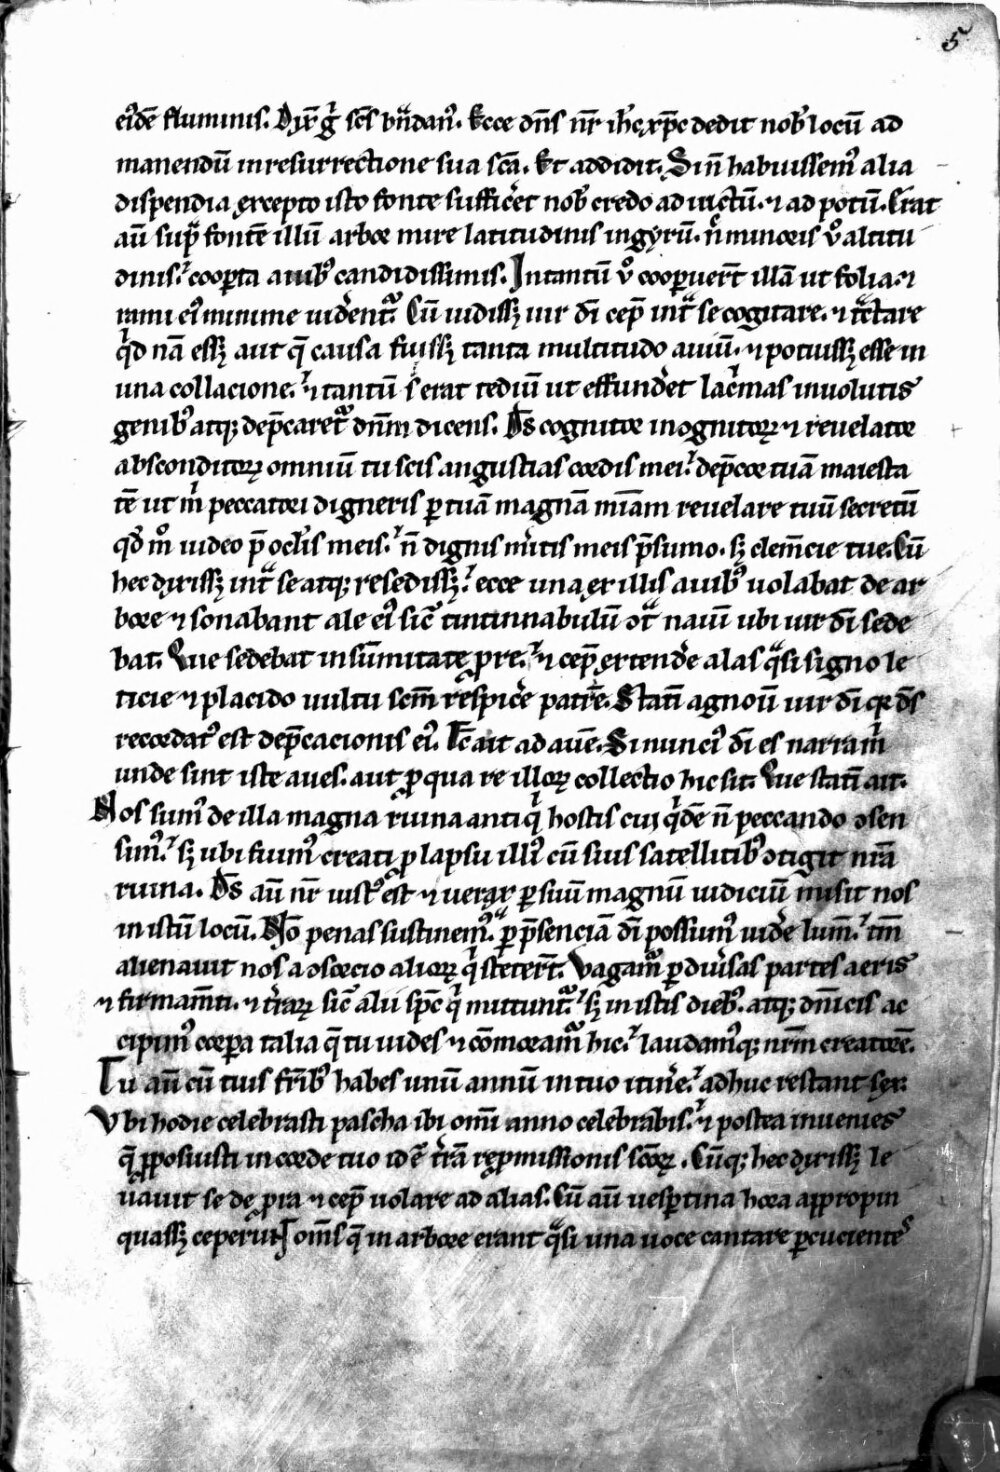 5
ei͛dē fluminis. Dix̄ gͥ sc̄s brͣndanꝰ. Ecce dn̄s nr̄ ih̄c xp̄c dedit nobꝭ locū ad
manendū in resurrectione sua sc̄a. Et addidit. Si n̄ habuissemꝰ alia
dispendia excepto isto fonte sufficeret nobꝭ credo ad uictū. ⁊ ad potū. Erat
aū supͣ fontē illū arbor mire latitudinis in gyrū. n̄ minoris uͦ altitu
dinis. cooꝑta auibꝰ candidissimis. Intantū uͦ cooꝑuert̄ illā ut folia. ⁊
rami eiꝰ minime uider̄entᷣ. Cū uidissꝫ uir dī cep̄ intͣ se cogitare. ⁊ tͣctare
qͥd nā essꝫ aut q̄ causa fuissꝫ tanta multitudo auiū. ⁊ potuissꝫ esse in
una collacione. ⁊ tantū ẜ erat tediū ut effunder̄et lacͥmas inuolutis
genibꝰ atqꝫ dep̄caretᷣ dn̄m dicens. Ds̄ cognitor inognitoꝝ ⁊ reuelator
absconditoꝝ omniū tu scis angustias cordis mei. dep̄cor tuā maiesta
tē ut mͥ peccatori digneris ꝑ tuā magnā mīam reuelare tuū secretū
qd̄ mͦ uideo p̄ oclis meis. n̄ dignis mītis meis p̄sumo. sꝫ clem̄cie tue. Cū
hec dixissꝫ intͣ se atqꝫ resedissꝫ. ecce una ex illis auibꝰ uolabat de ar
bore ⁊ sonabant ale eiꝰ sic̄ tintinnabulū ꝯtͣ nauū ubi uir dī sede
bat. Que sedebat in sūmitate prore. ⁊ cep̄ extender̄e alas qͣsi signo le
ticie ⁊ placido uultu sc̄m respicer̄e patrē. Statī agnouͥ uir dī qꝛ ds̄
recordatꝰ est dep̄cacionis eiꝰ. Et̄ ait ad auē. Si nunciꝰ dī es narra mͥ
unde sint iste aues. aut ꝓ qua re illoꝝ collectio hic sit. Que statī ait.
Nos sumꝰ de illa magna ruina antiqͥ hostis cuiꝰ qͥdē n̄ peccando ꝯsen
simꝰ. sꝫ ubi fuimꝰ creati ꝓ lapsu illiꝰ cū suis satellitibꝰ ꝯtigit nr̄a
ruina. Ds̄ aū nr̄ iustꝰ est ⁊ uerax ꝑ suū magnū iudiciū misit nos
in istū locū. Nō penas sustinemꝰ. ꝑ p̄senciā dī possumꝰ uider̄e lum̄. tm̄
alienauit nos a ꝯsorcio alioꝝ qͥ steter̄t. Vagamᷣ ꝑ diuersas partes aeris
⁊ firmam̄ti. ⁊ tr̄arꝝ sic̄ alii spc̄ qͥ mittuntᷣ. sꝫ in istis diebꝰ. atqꝫ dn̄icis ac
cipimꝰ corꝑa talia q̄ tu uides ⁊ cōmoramᷣ hic. laudamꝰqꝫ nr̄m creatorē.
Tu aū cū tuis fr̄ibꝰ habes unū annū in tuo itiner̄e. adhuc restant sex.
Vbi hodie celebrasti pascha ibi omī anno celebrabis. ⁊ postea inuenies
q̄ ꝓposuisti in corde tuo id ē tr̄ā reꝓmissionis sc̄oꝝ. Cūqꝫ hec dixissꝫ le
uauit se de prora ⁊ cep̄ uolare ad alias. Cū aū uesꝑtina hora appropin
quassꝫ ceperūt om̄s q̄ in arbore erant qͣsi una uoce cantare ꝑcucientes